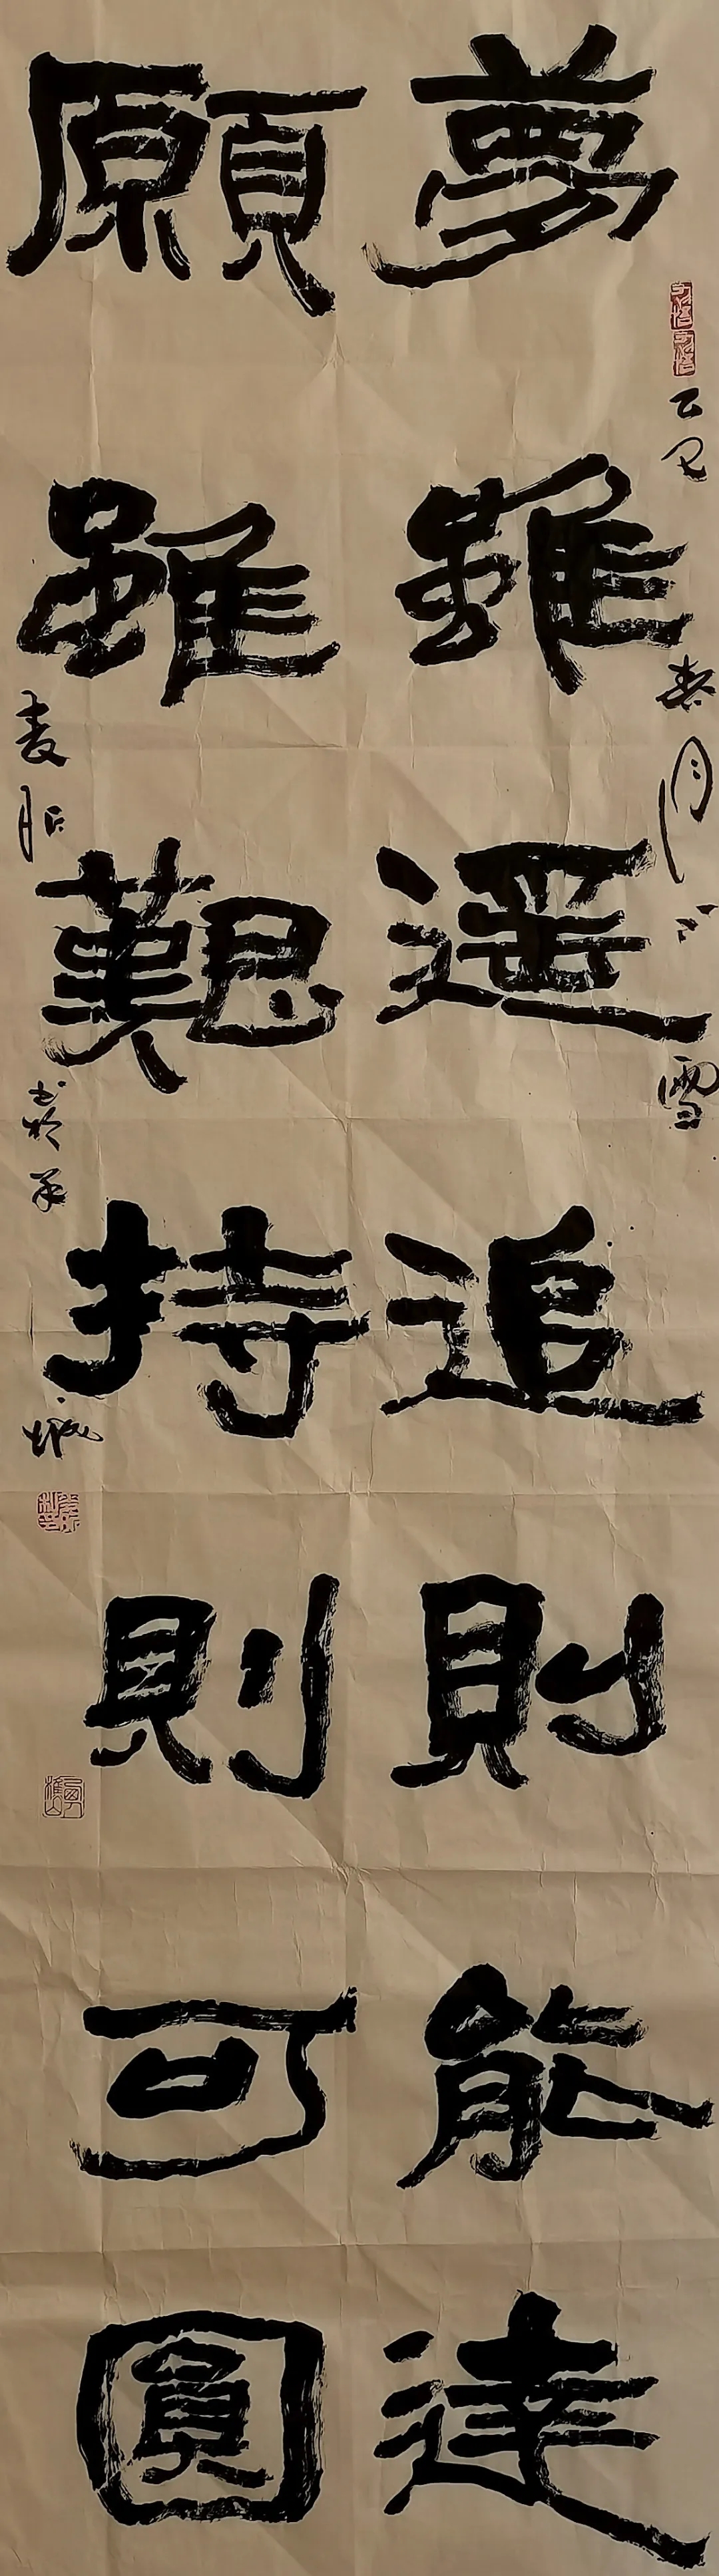 夢雖遥追則能達
願雖艱持則可圓
乙巳春月下雪
書於羊城